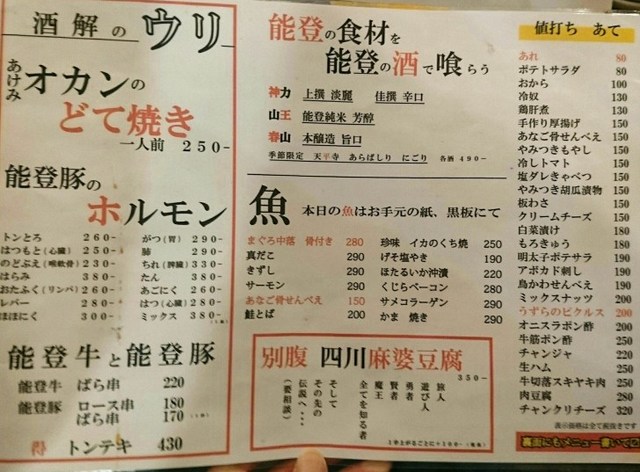 酒解のウリ
あけみオカンの
どて焼き
一人前 250-
能登豚の
ホルモン
トンとろ 260-
はつもと(心臓) 250-
のどぶえ(喉軟骨) 230-
はらみ 380-
おたふく(リンパ) 260-
レバー 280-
ほほにく 300-
がつ(胃) 290-
肺 290-
ちれ(脾臓) 330-
たん 380-
あごにく 260-
はつ(心臓) 280-
ミックス 380-
能登牛と能登豚
能登牛 ばら串 220
能登豚 ロース串 180
ばら串 170
得 トンテキ 430
能登の食材を
能登の酒で喰らう
神力 上撰 淡麗 佳撰 辛口
山王 能登純米 芳醇
春山 本醸造 旨口
季節限定 天平寺 あらばしり にごり 各酒 490-
魚 本日の魚はお手元の紙、黒板にて
まぐろ中落 骨付き 280
真だこ 290
きずし 290
サーモン 290
あなご骨せんべえ 150
鮭とば 200
珍味 イカのくち焼 250
げそ塩やき 190
ほたるいか沖漬 220
くじらベーコン 280
サメコラーゲン 290
かま 焼き 290
別腹 四川麻婆豆腐
350-
旅人
遊び人
勇者
賢者
魔王
全てを知る者
そして
その先の
伝説へ・・・
(要相談)
値打ち あて
あれ 80
ポテトサラダ 80
おから 100
冷奴 130
鶏肝煮 130
手作り厚揚げ 150
あなご骨せんべえ 150
やみつきもやし 150
冷しトマト 150
塩ダレきゃべつ 150
やみつき胡瓜漬物 150
板わさ 150
クリームチーズ 150
白菜漬け 180
もろきゅう 180
明太子ポテサラ 190
アボカド刺し 190
鳥かわせんべえ 190
ミックスナッツ 200
うずらのピクルス 200
オニスラポン酢 200
牛筋ポン酢 250
チャンジャ 220
生ハム 250
牛切落スキヤキ肉 250
肉豆腐 280
チャンクリチーズ 320
表示価格は全て税抜きです